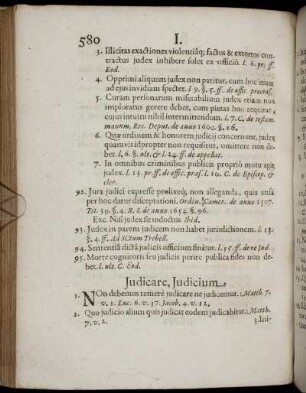 580 I.
3. Illicitas exactiones violentiâq; factos & extortos con-
tractus judex inhibere solet ex officiô. l. 6. pr. ff.
Eod.
4. Opprimi aliquem judex non patitur, cum hoc etiam
ad ejus invidiam spectet. l. 9. §. 5. ff. de offic. procons.
5. Curam personarum miserabilium judex etiam non
imploratus gerere debet, cum pietas hoc requirat,
cum intuitu nihil intermittendum. l. 7. C. de testam.
Rec. Deput. de anno 1600. §. 26.
6. Quæ ordinem & honorem judicii concernunt, judex
quamvis propter non requisitus, omittere non de-
bet. l. 6. §. ult. & l. 24. ff. de appellat.
7. In omnibus criminibus publicis propriô motu agit
judex. l. 13. pr. ff. de offic. præs. l. 10. C. de Episcop. &
cler.
92. Jura judici expressè non alleganda, quia ansa
per hoc datur disceptationi. Ordin. Camer. de anno 1507.
Tit. 39. §. 4. R. I. de anno 1654. §. 96.
Exc. Nisi judex sit indoctus Ibid.
93. Judex in parem judicem non habet jurisdictionem. l. 13.
§. 4. ff. Ad SCtum Trebell.
94. Sententiâ dictâ judicis officium finitur. l. 55. ff. de re jud.
95. Morte cognitoris seu judicis perire publica fides non de-
bet. l. ult. C. Eod.
Judicare, Judicium.
1. NOn debemus temerè judicare ne judicemur. Matth. 7.
v. 1. Luc. 6. v. 37. Jacob. 4. v. 12.
2. Quo judicio alium quis judicat eodem judicabitur. Matth.
7. v. 2.
3. Ini-